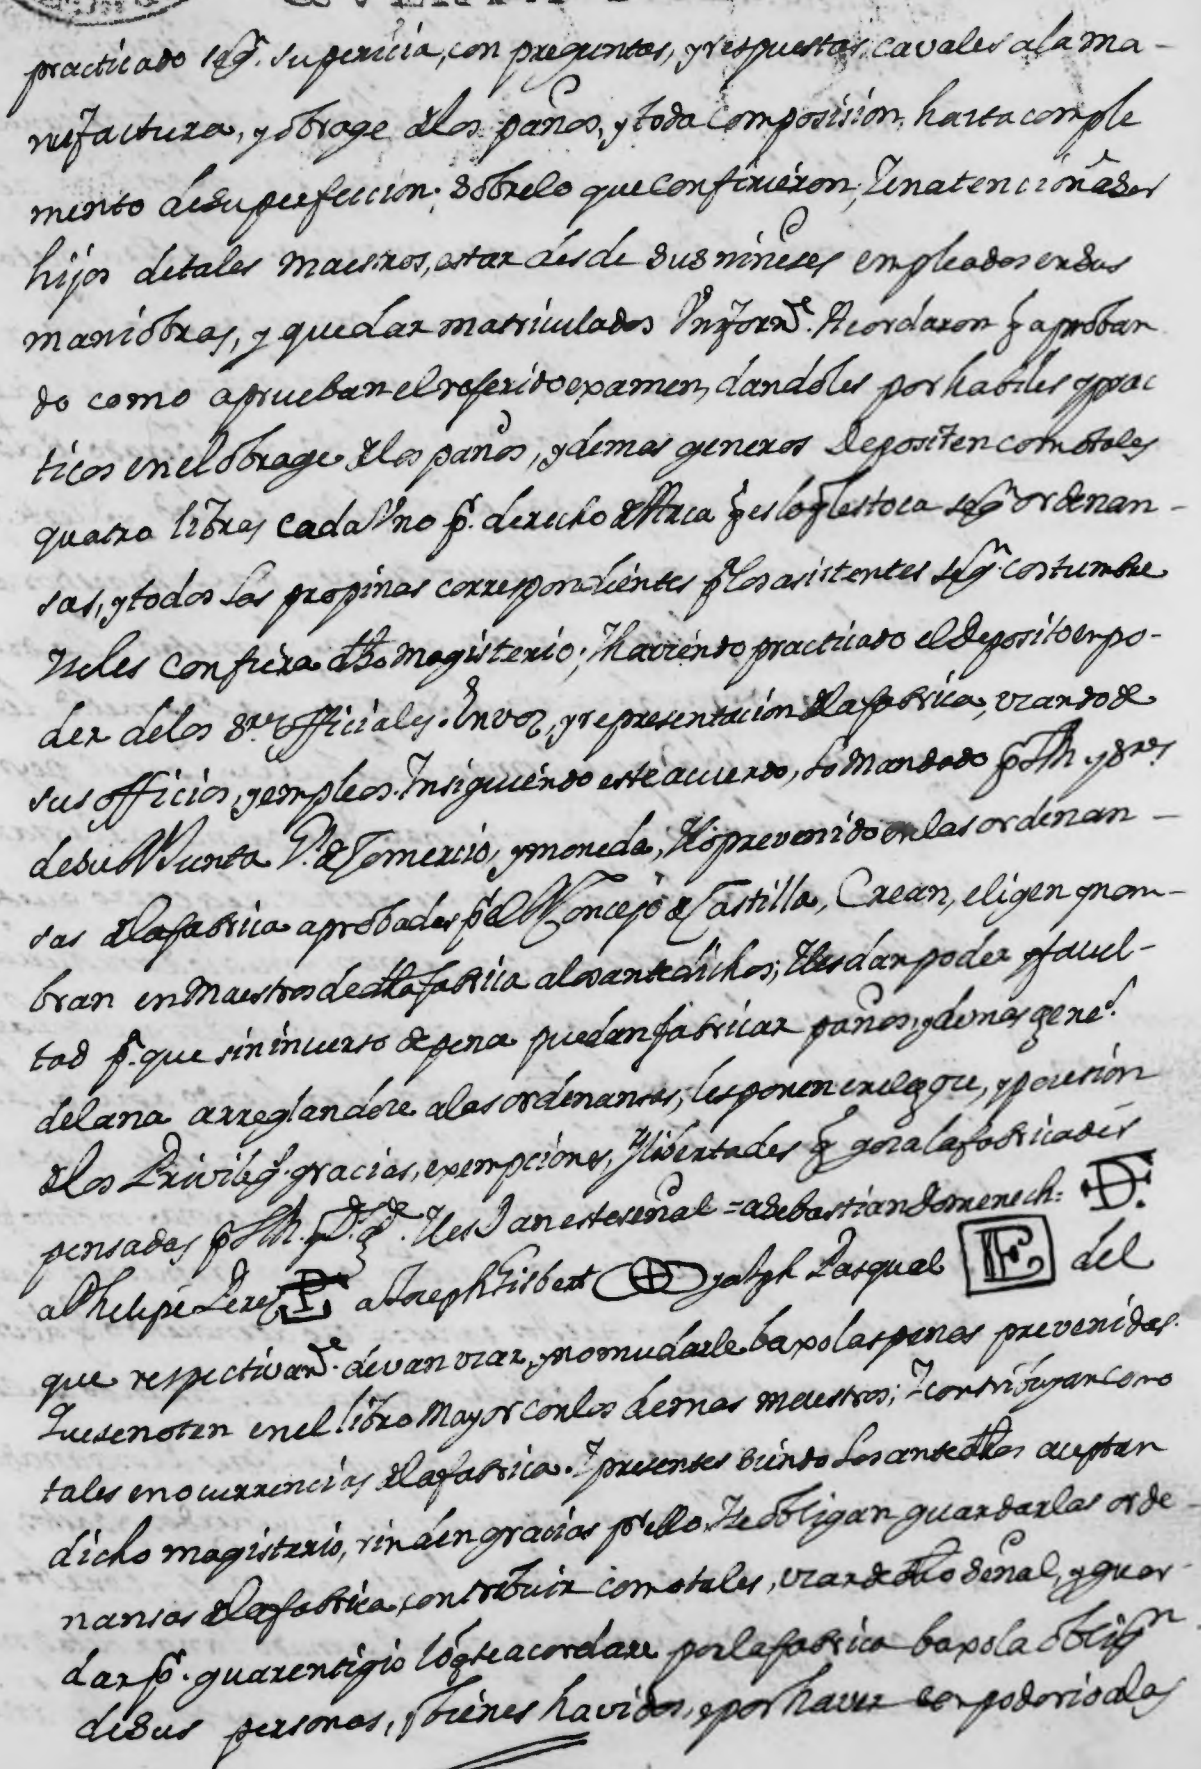 practicado segn. su pericia, con preguntas, y respuestas cavales a la ma-
nifactura, y obrage de los paños, y toda composision, hasta comple
mento de su perfeccion; sobre lo que confirieron; Y en atencion a ser
hijos de tales Maestros, estar desde sus niñeses empleados en sus
maniobras, y quedar matriculados Uniforme. Acordaron q aproban
do como aprueban el referido examen, dandoles por habiles y prac
ticos en el obrage de los paños, y demas generos depositen como tales
quatro libras cada Uno pr. derecho de Arca q es lo q les toca segn ordenan-
sas, y todos las propinas correspondientes pr los asistentes segn costumbre
Y se les confiera dho Magisterio; Y haviendo practicado el deposito en po-
der de los Sres officiales. En voz, y representacion de la fabrica, vzando de
sus officios, y empleos. Insiguiendo este acuerdo, lo Mandado pr S M. y Sres
de su Rl Junta Gl. de Comercio, y moneda, Y lo prevenido en las ordenan-
sas de la fabrica aprobadas pr el Rl Concejo de Castilla, Crean, eligen y nom-
bran en Maestros de dha fabrica a los antedichos; Y les dan poder y facul-
tad pr. que sin incurso de pena puedan fabricar paños, y demas genes.
de lana arreglandose a las ordenansas, les ponen en el goze, y pocesion
de los Privilegs. gracias, exempciones, Y libertades q goza la fabrica dis
pensadas pr S M. q D. g. Y les dan este señal = a Sebastian Domenech: D.
a Phelipe Perez P a Joseph Gisbert y a Jph Pasqual F del
que respectivamte. devan vzar, y no mudarle baxo las penas prevenidas.
Y se noten en el libro Mayor con los demas maestros; Y contribuyan como
tales en ocurrencias de la fabrica. Y presentes siendo los antedhos aceptan
dicho magisterio, rinden gracias pr ello, Y se obligan guardar las orde-
nansas de la fabrica, contribuir como tales, vzar de dho señal, y guar-
dar pr. guarentigio lo q se acordare por la fabrica baxo la obliggn
de sus personas, y bienes havidos, e por haver poderio a las